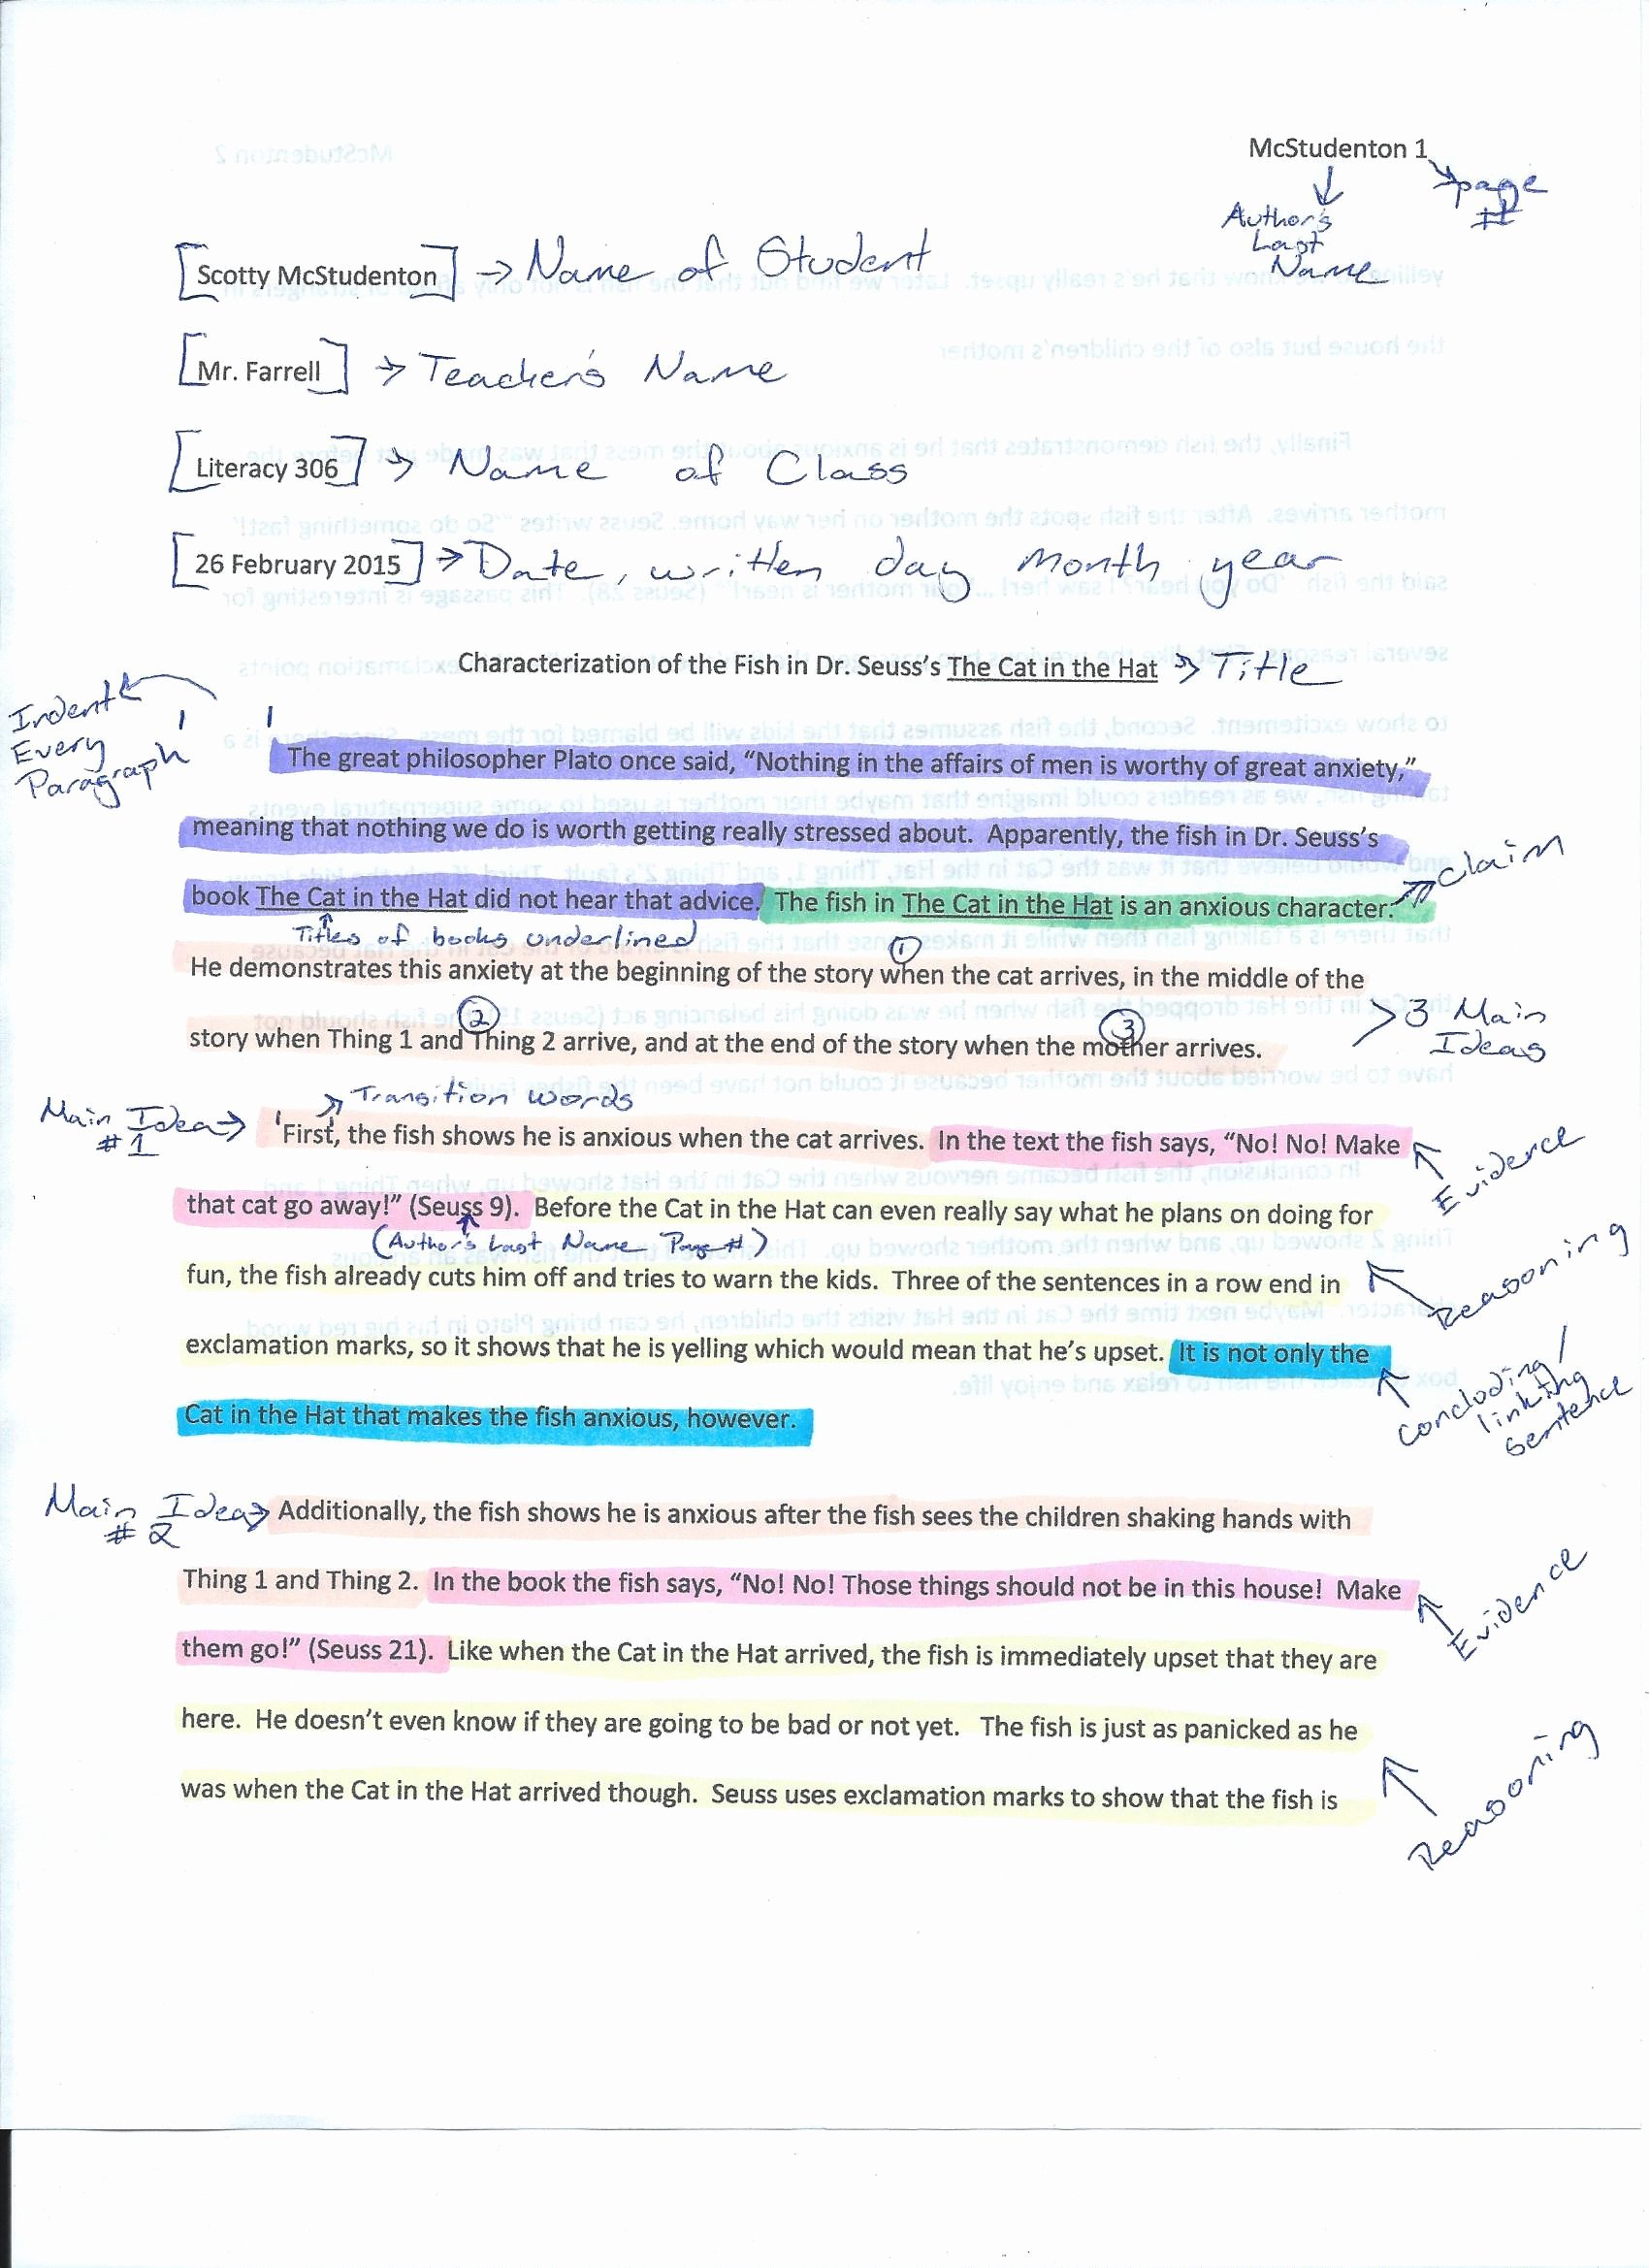 McStudenton 1
page #
Author's Last Name
[Scotty McStudenton] → Name of Student
[Mr. Farrell] → Teacher's Name
[Literacy 306] → Name of Class
[26 February 2015] → Date, written day month year
Characterization of the Fish in Dr. Seuss's The Cat in the Hat → Title
Indent
Every
Paragraph
The great philosopher Plato once said, “Nothing in the affairs of men is worthy of great anxiety,”
meaning that nothing we do is worth getting really stressed about. Apparently, the fish in Dr. Seuss's
claim
book The Cat in the Hat did not hear that advice. The fish in The Cat in the Hat is an anxious character.
Titles of books underlined
1
He demonstrates this anxiety at the beginning of the story when the cat arrives, in the middle of the
2
3
3 Main
Ideas
story when Thing 1 and Thing 2 arrive, and at the end of the story when the mother arrives.
Transition words
Main Idea →
#1
First, the fish shows he is anxious when the cat arrives. In the text the fish says, “No! No! Make
Evidence
that cat go away!” (Seuss 9). Before the Cat in the Hat can even really say what he plans on doing for
(Author's Last Name Page #)
Reasoning
fun, the fish already cuts him off and tries to warn the kids. Three of the sentences in a row end in
exclamation marks, so it shows that he is yelling which would mean that he's upset. It is not only the
concluding/
linking
sentence
Cat in the Hat that makes the fish anxious, however.
Main Idea →
#2
Additionally, the fish shows he is anxious after the fish sees the children shaking hands with
Thing 1 and Thing 2. In the book the fish says, “No! No! Those things should not be in this house! Make
Evidence
them go!” (Seuss 21). Like when the Cat in the Hat arrived, the fish is immediately upset that they are
here. He doesn't even know if they are going to be bad or not yet. The fish is just as panicked as he
Reasoning
was when the Cat in the Hat arrived though. Seuss uses exclamation marks to show that the fish is